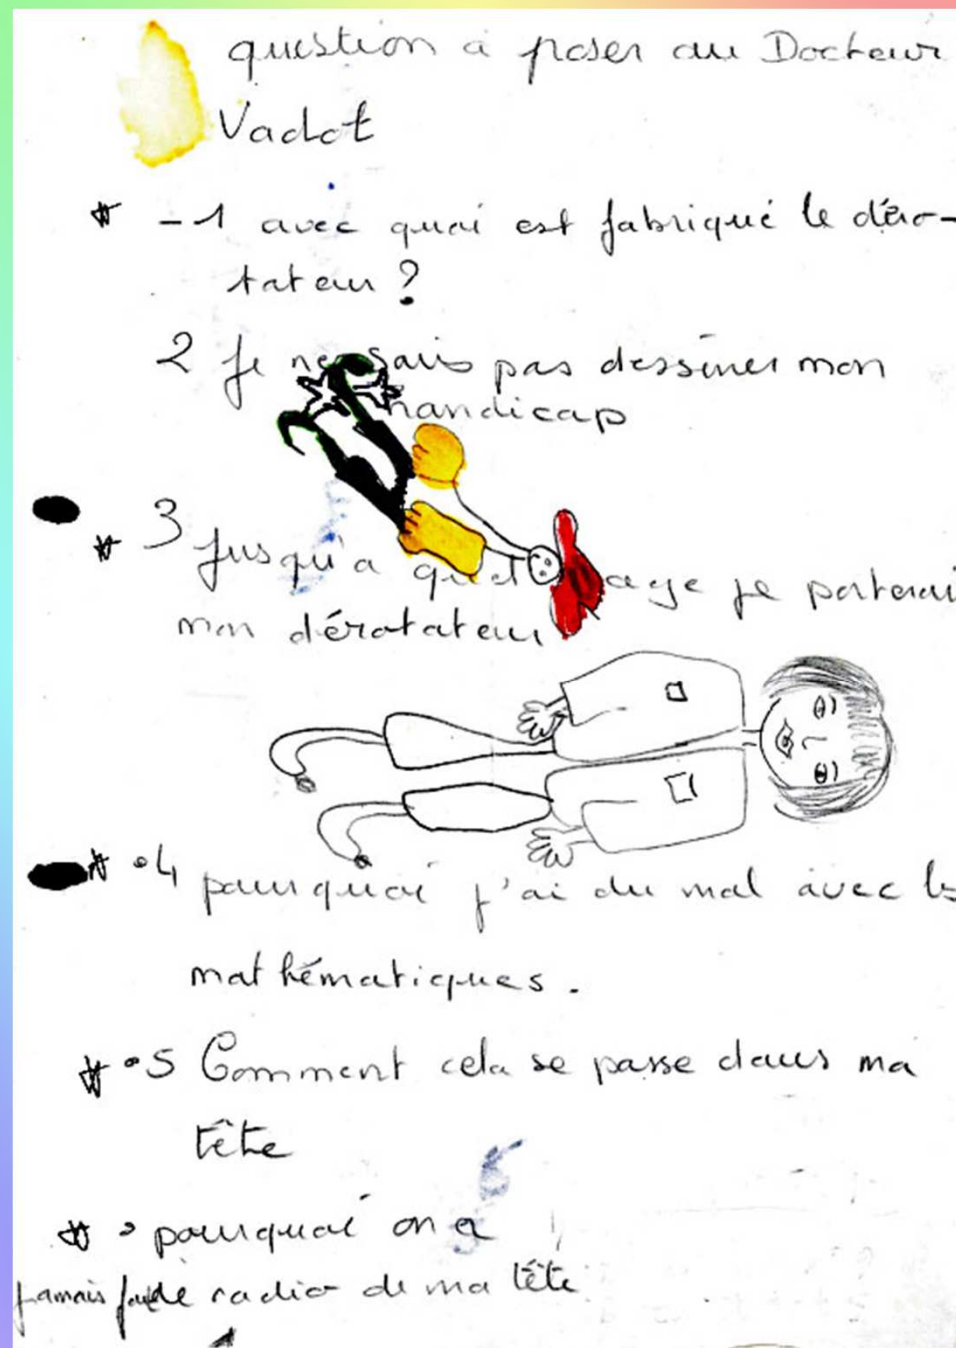 question à poser au Docteur
Vadot
* - 1 avec quoi est fabriqué le déro-
tateur ?
2 Je ne sais pas dessiner mon
handicap
* 3 Jusqu'a quel age je porterai
mon dérotateur
* • 4 pourquoi j'ai du mal avec les
mathématiques.
* • 5 Comment cela se passe dans ma
tête
* • pourquoi on a
jamais fait de radio de ma tête